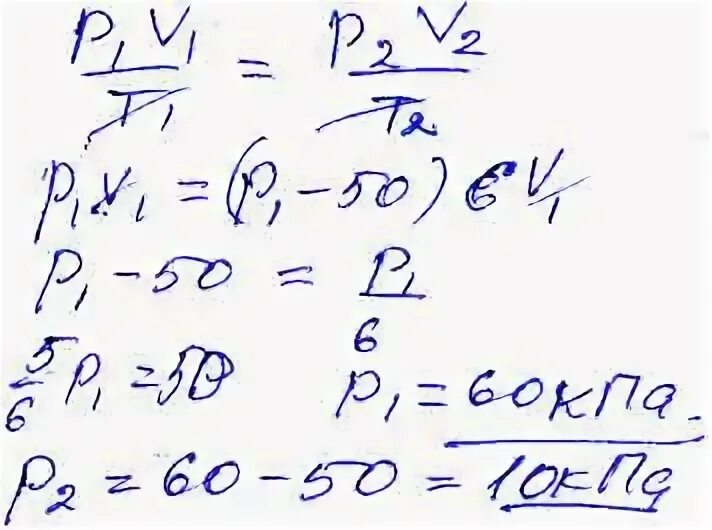 P₁ V₁ / T₁ = P₂ V₂ / T₂
P₁ V₁ = (P₁ − 50) 6 V₁
P₁ − 50 = P₁ / 6
5/6 P₁ = 50 P₁ = 60 кПа.
P₂ = 60 − 50 = 10 кПа